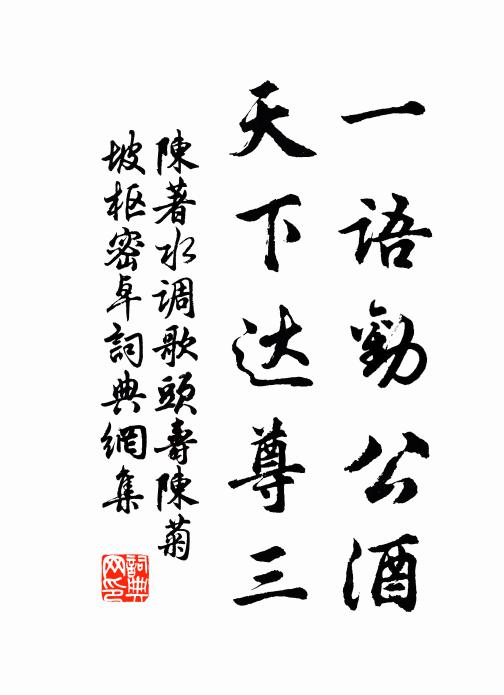 一语勸公酒
天下达尊三
陳著水调歌頭壽陳菊
坡枢密卓詞典網集
詞典
网印